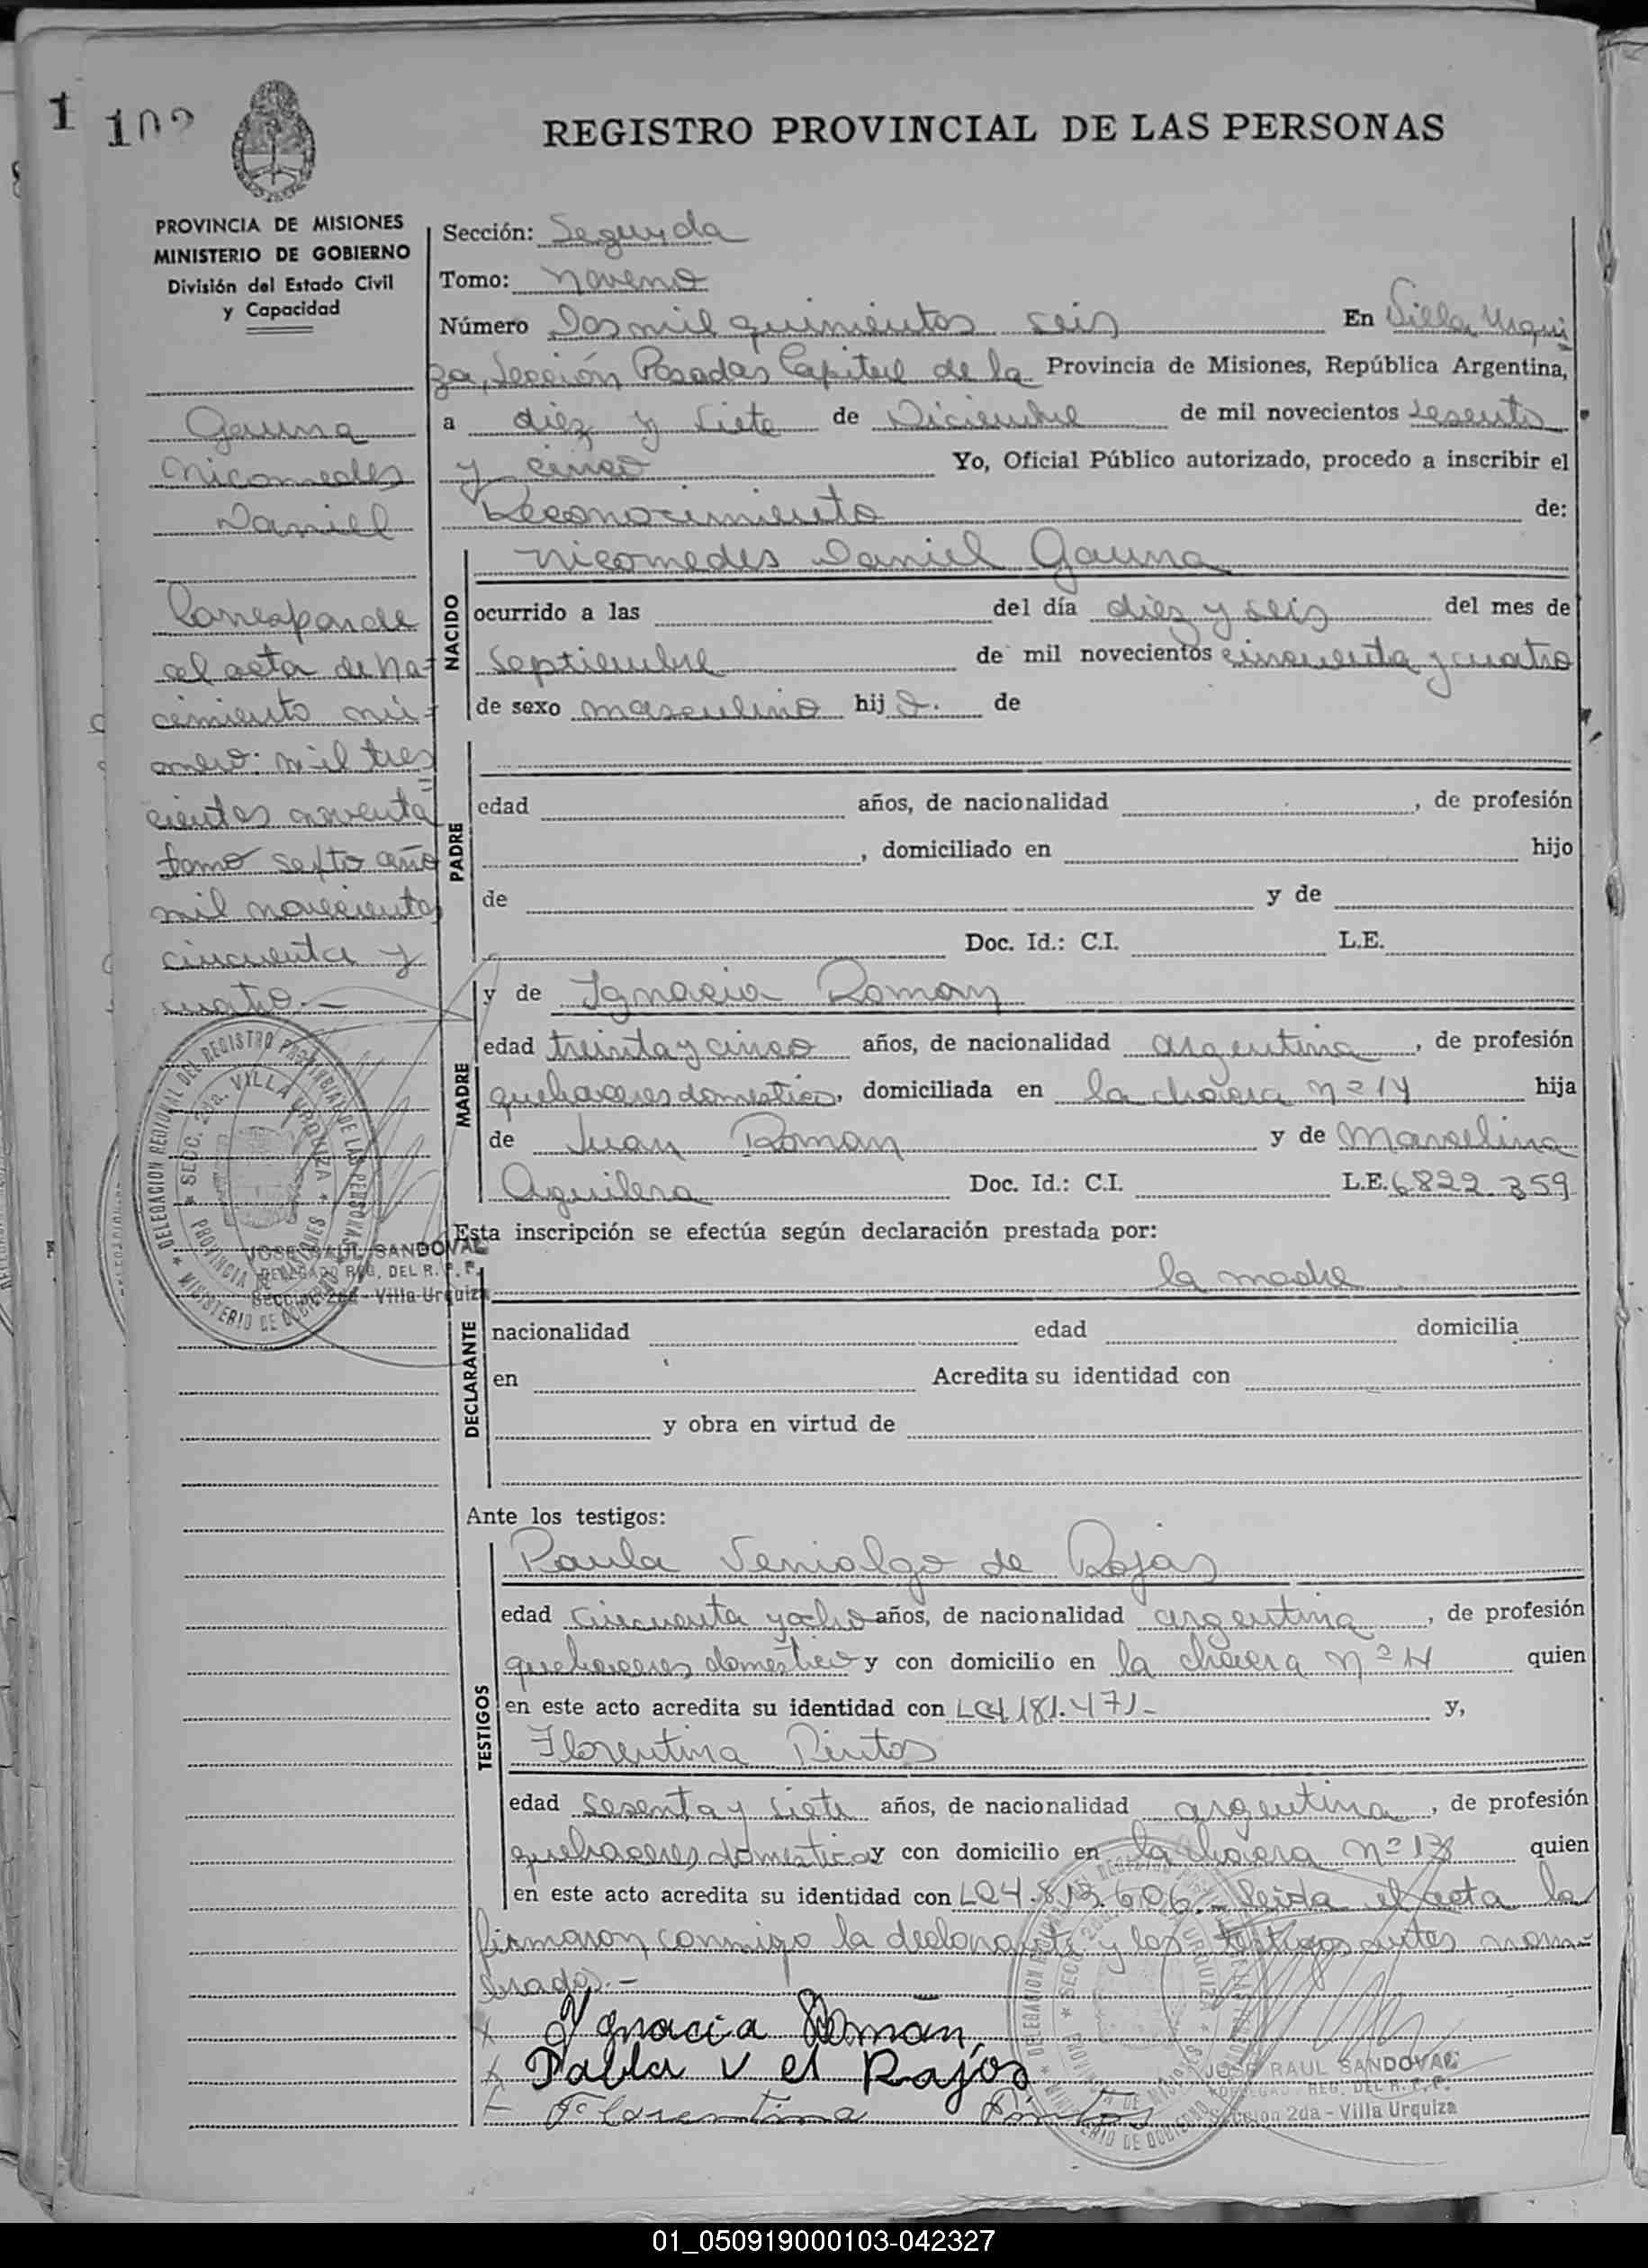 1 102
REGISTRO PROVINCIAL DE LAS PERSONAS
PROVINCIA DE MISIONES
MINISTERIO DE GOBIERNO
División del Estado Civil
y Capacidad
Gauna
Nicomedes
Daniel
Corresponde
al acta de na-
cimiento nú-
mero: mil tres
cientos noventa
tomo sexto año
mil novecientos
cincuenta y
cuatro.—
DELEGACION REGIONAL DEL REGISTRO PROVINCIAL DE LAS PERSONAS
SECC. 2da. VILLA URQUIZA
PROVINCIA DE MISIONES
MINISTERIO DE GOBIERNO
JOSE RAUL SANDOVAL
DELEGADO REG. DEL R. P. P.
Sección 2da - Villa Urquiza
Sección: Segunda
Tomo: Noveno
Número Dos mil quinientos seis En Villa Urqui
za, Sección Posadas Capital de la Provincia de Misiones, República Argentina,
a diez y siete de Diciembre de mil novecientos sesenta
y cinco Yo, Oficial Público autorizado, procedo a inscribir el
Reconocimiento de:
NACIDO
Nicomedes Daniel Gauna
ocurrido a las del día diez y seis del mes de
Septiembre de mil novecientos cincuenta y cuatro
de sexo masculino hijo. de
PADRE
edad años, de nacionalidad , de profesión
, domiciliado en hijo
de y de
Doc. Id.: C.I. L.E.
MADRE
y de Ignacia Roman
edad treinta y cinco años, de nacionalidad argentina, de profesión
quehaceres domestico, domiciliada en la chacra nº 14 hija
de Juan Roman y de Marcelina
Aguilera Doc. Id.: C.I. L.E. 6.822.359
Esta inscripción se efectúa según declaración prestada por:
la madre
DECLARANTE
nacionalidad edad domicilia
en Acredita su identidad con
y obra en virtud de
Ante los testigos:
TESTIGOS
Paula Venialgo de Rojas
edad cincuenta y ocho años, de nacionalidad argentina, de profesión
quehaceres domestico y con domicilio en la chacra nº 14 quien
en este acto acredita su identidad con 181.471- y,
Florentina Pintos
edad sesenta y siete años, de nacionalidad argentina, de profesión
quehaceres domestico y con domicilio en la chacra nº 13 quien
en este acto acredita su identidad con 4.813.606.- leida el acta la
firmaron conmigo la declarante y los testigos antes nom-
brados.-
Ygnacia Roman
Paula v el Rajos
Florentina Pintos
DELEGACION REGIONAL
SECC. 2da. VILLA URQUIZA
PROVINCIA DE MISIONES
MINISTERIO DE GOBIERNO
JOSE RAUL SANDOVAL
DELEGADO REG. DEL R. P. P.
Sección 2da - Villa Urquiza
01_050919000103-042327